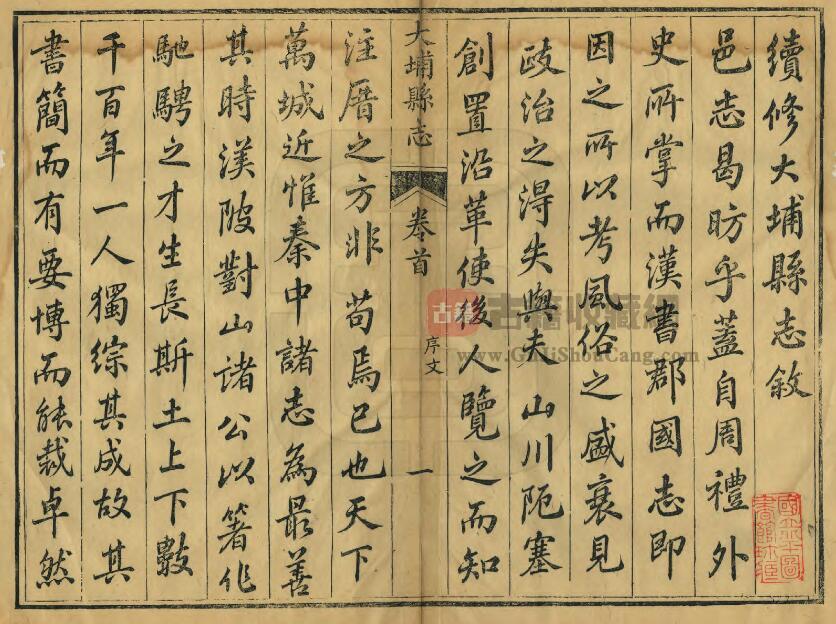 續修大埔縣志敘
邑志曷昉乎蓋自周禮外
史所掌而漢書郡國志即
因之所以考風俗之盛衰見
政治之得失與夫山川阨塞
創置沿革使後人覽之而知
大埔縣志 卷首 序文 一
注厝之方非苟焉已也天下
萬城近惟秦中諸志為最善
其時渼陂對山諸公以著作
馳騁之才生長斯土上下數
千百年一人獨綜其成故其
書簡而有要博而能裁卓然
古籍 古籍收藏網
www.GuJiShouCang.com